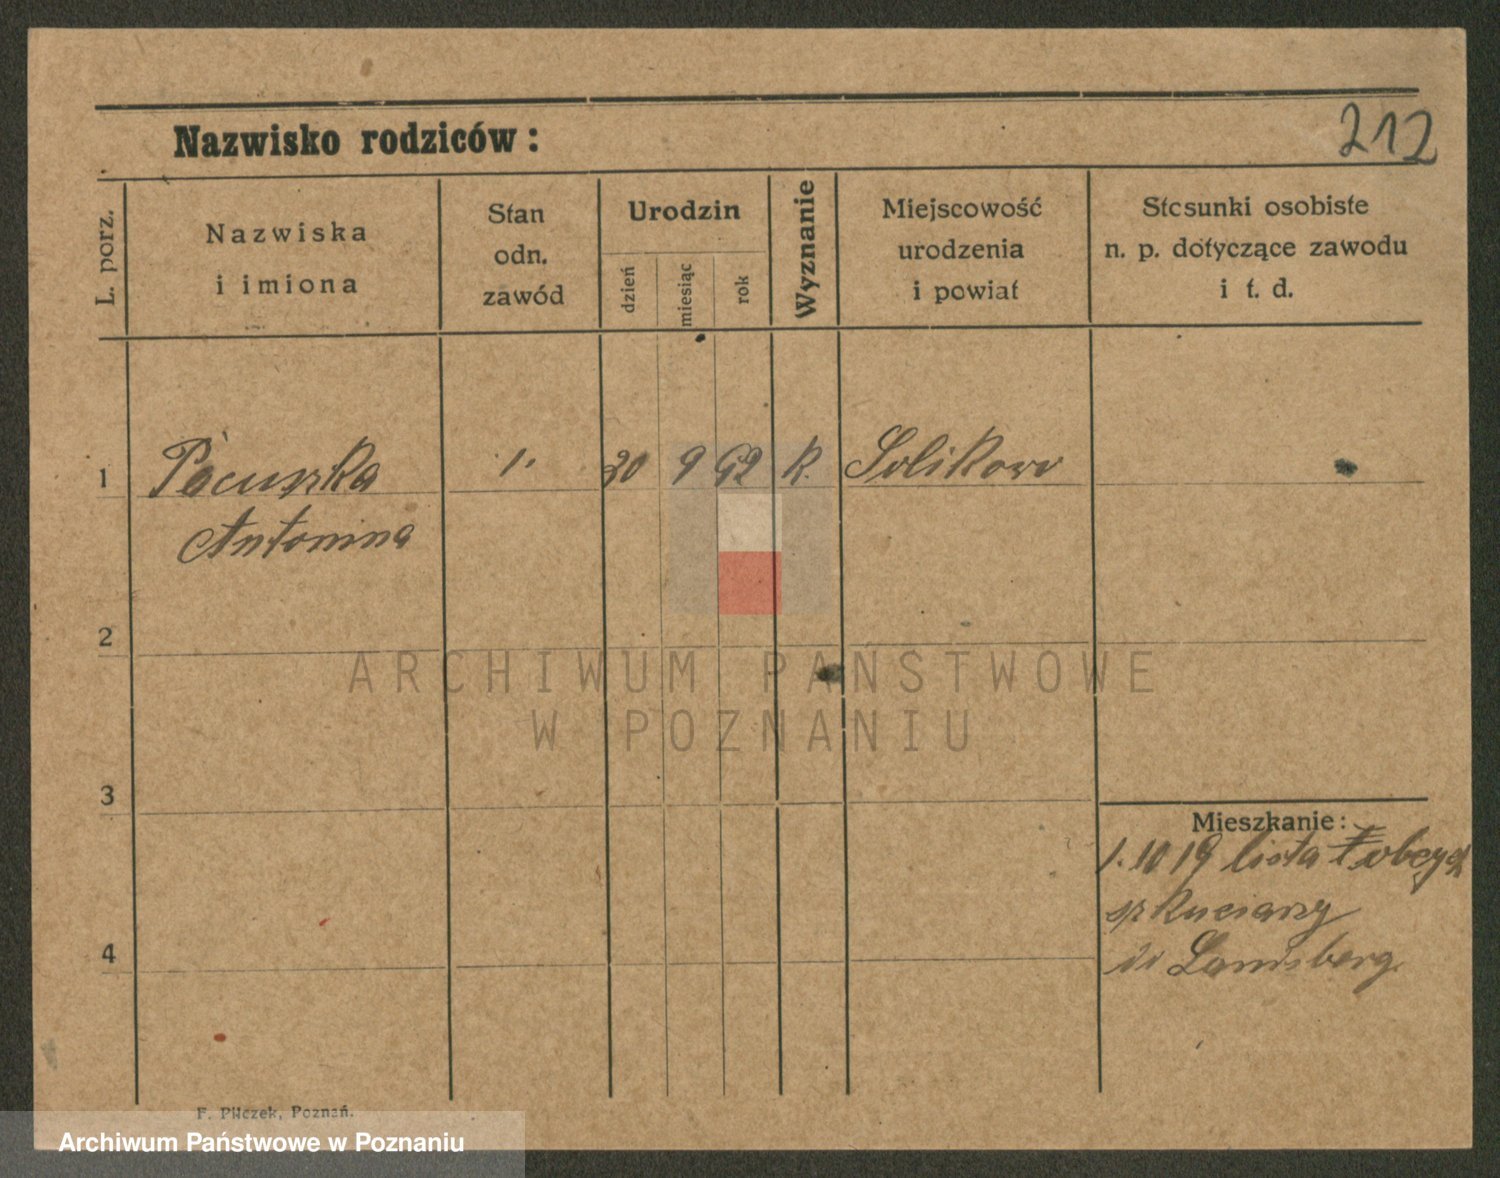 212
Nazwisko rodziców:
L. porz.
Nazwiska
i imiona
Stan
odn.
zawód
Urodzin
dzień
miesiąc
rok
Wyznanie
Miejscowość
urodzenia
i powiat
Stosunki osobiste
n. p. dotyczące zawodu
i t. d.
1 Pacuszka 1. 20 9 62 k. Solikowo
Antonina
2
ARCHIWUM PAŃSTWOWE
W POZNANIU
3
Mieszkanie:
1. 10 19 lista
4
Landsberg
F. Pilczek, Poznań.
Archiwum Państwowe w Poznaniu